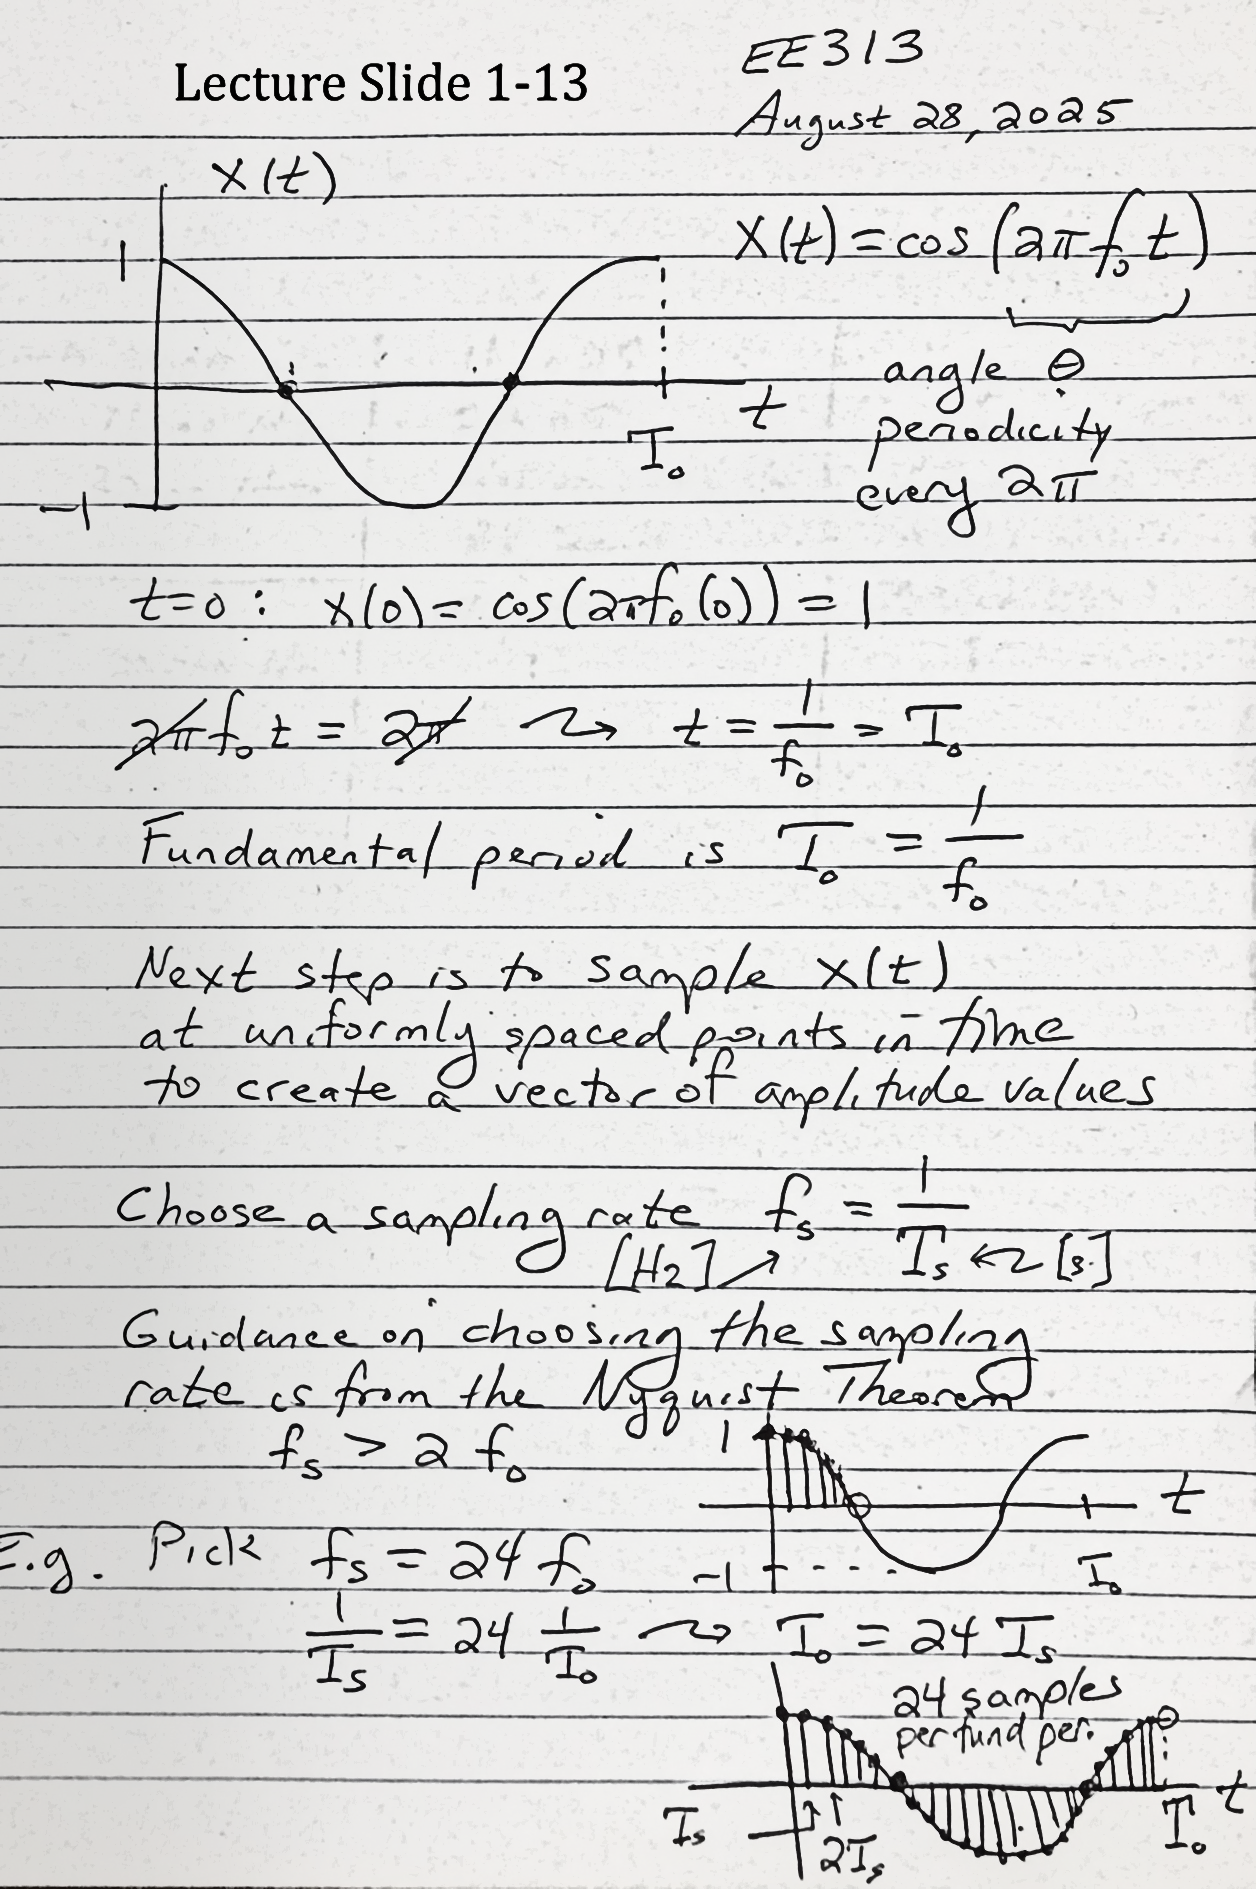 EE313
Lecture Slide 1-13
August 28, 2025
x(t)
1
-1
T₀
t
x(t) = cos(2πf₀t)
angle θ
periodicity
every 2π
t=0: x(0) = cos(2πf₀(0)) = 1
2πf₀t = 2π ⤳ t = 1/f₀ = T₀
Fundamental period is T₀ = 1/f₀
Next step is to sample x(t)
at uniformly spaced points in time
to create a vector of amplitude values
Choose a sampling rate fₛ = 1/Tₛ
[Hz] ↗ ← [s]
Guidance on choosing the sampling
rate is from the Nyquist Theorem
fₛ > 2 f₀
1
t
-1
T₀
E.g. Pick fₛ = 24 f₀
1/Tₛ = 24 1/T₀ ⤳ T₀ = 24 Tₛ
24 samples
per fund per.
t
Tₛ
2Tₛ
T₀